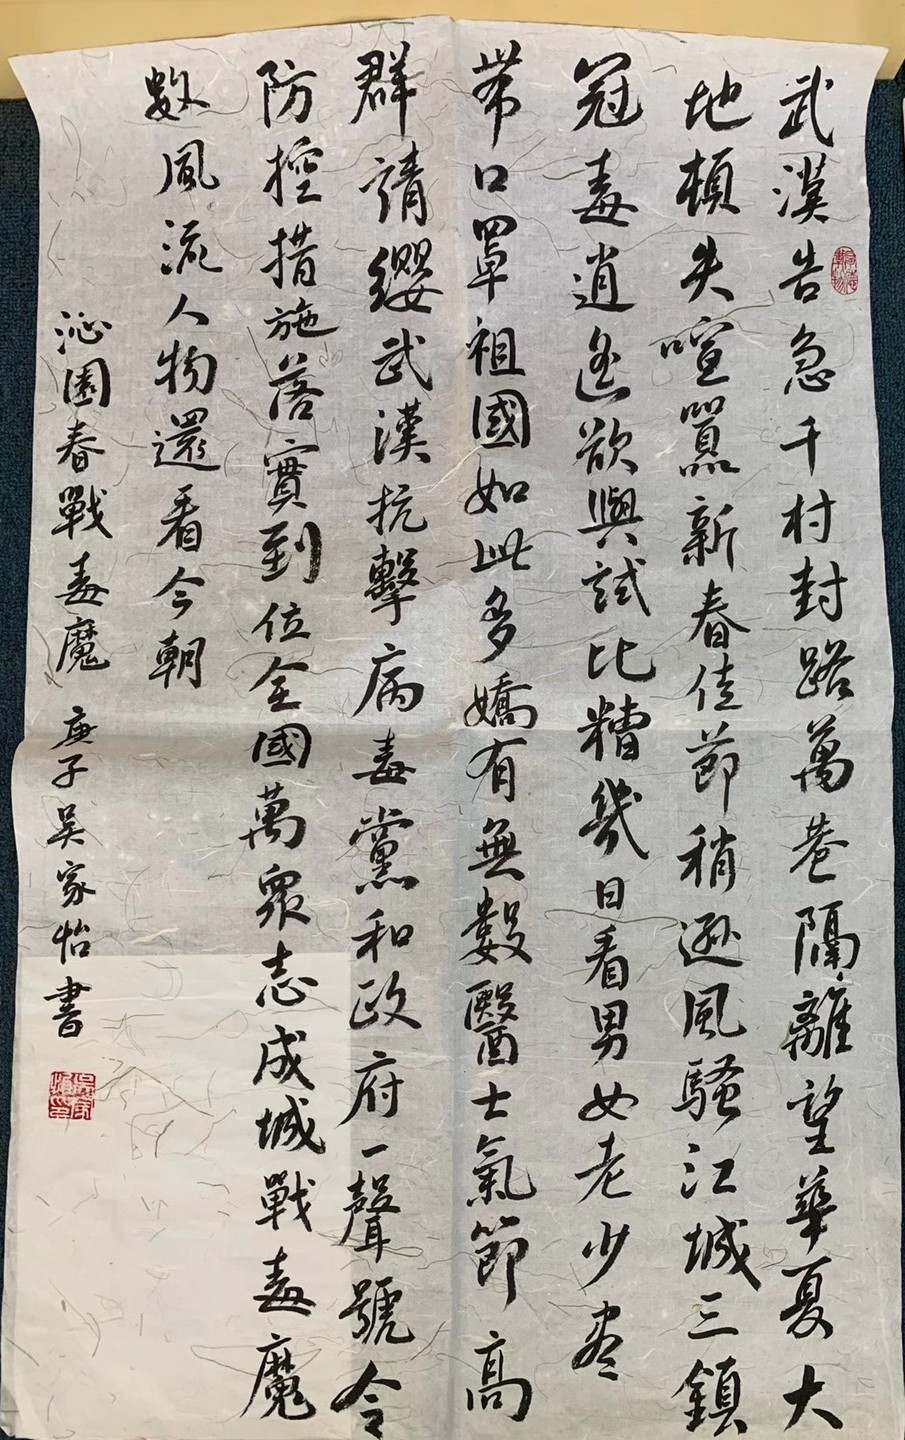 武漢告急千村封路萬巷隔離望華夏大
地頓失喧囂新春佳節稍遜風騷江城三鎮
冠毒逍遙欲與試比糟幾日看男女老少盡
帶口罩祖國如此多嬌有無數醫士氣節高
群請纓武漢抗擊病毒黨和政府一聲號令
防控措施落實到位全國萬眾志成城戰毒魔
数風流人物還看今朝
沁園春戰毒魔 庚子吴家怡書